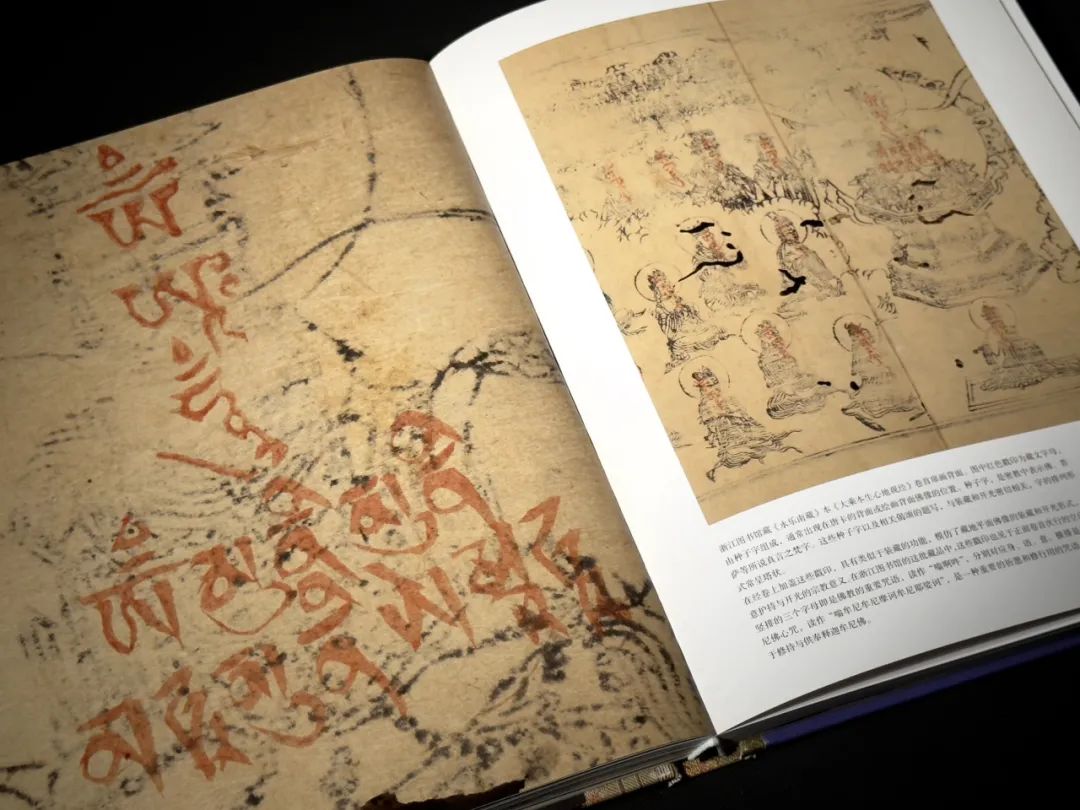 ཨོཾ
ཨཱཿ
ཧཱུྃ
浙江图书馆藏《永乐南藏》本《大乘本生心地观经》卷首扉画背面。图中红色戳印为藏文字母，
由种子字组成，通常出现在唐卡的背面或绘画背面佛像的位置。种子字，是密教中表示佛、菩
萨等所说真言之梵字。这些种子字以及相关偈颂的题写，与装藏和开光密切相关，字的排列形
式常呈塔状。
在经卷上加盖这些戳印，具有类似于装藏的功能，模仿了藏地平面佛像的装藏和开光形式，
意护持与开光的宗教意义。在浙江图书馆的这批藏品中，这些戳印也见于正面卷首次行的空白
竖排的三个字母即是佛教的重要咒语，读作“嗡啊吽”，分别对应身、语、意。横排是
尼佛心咒，读作“嗡牟尼牟尼摩诃牟尼耶娑诃”，是一种重要的祈愿和修行用的咒语
于修持与供奉释迦牟尼佛。